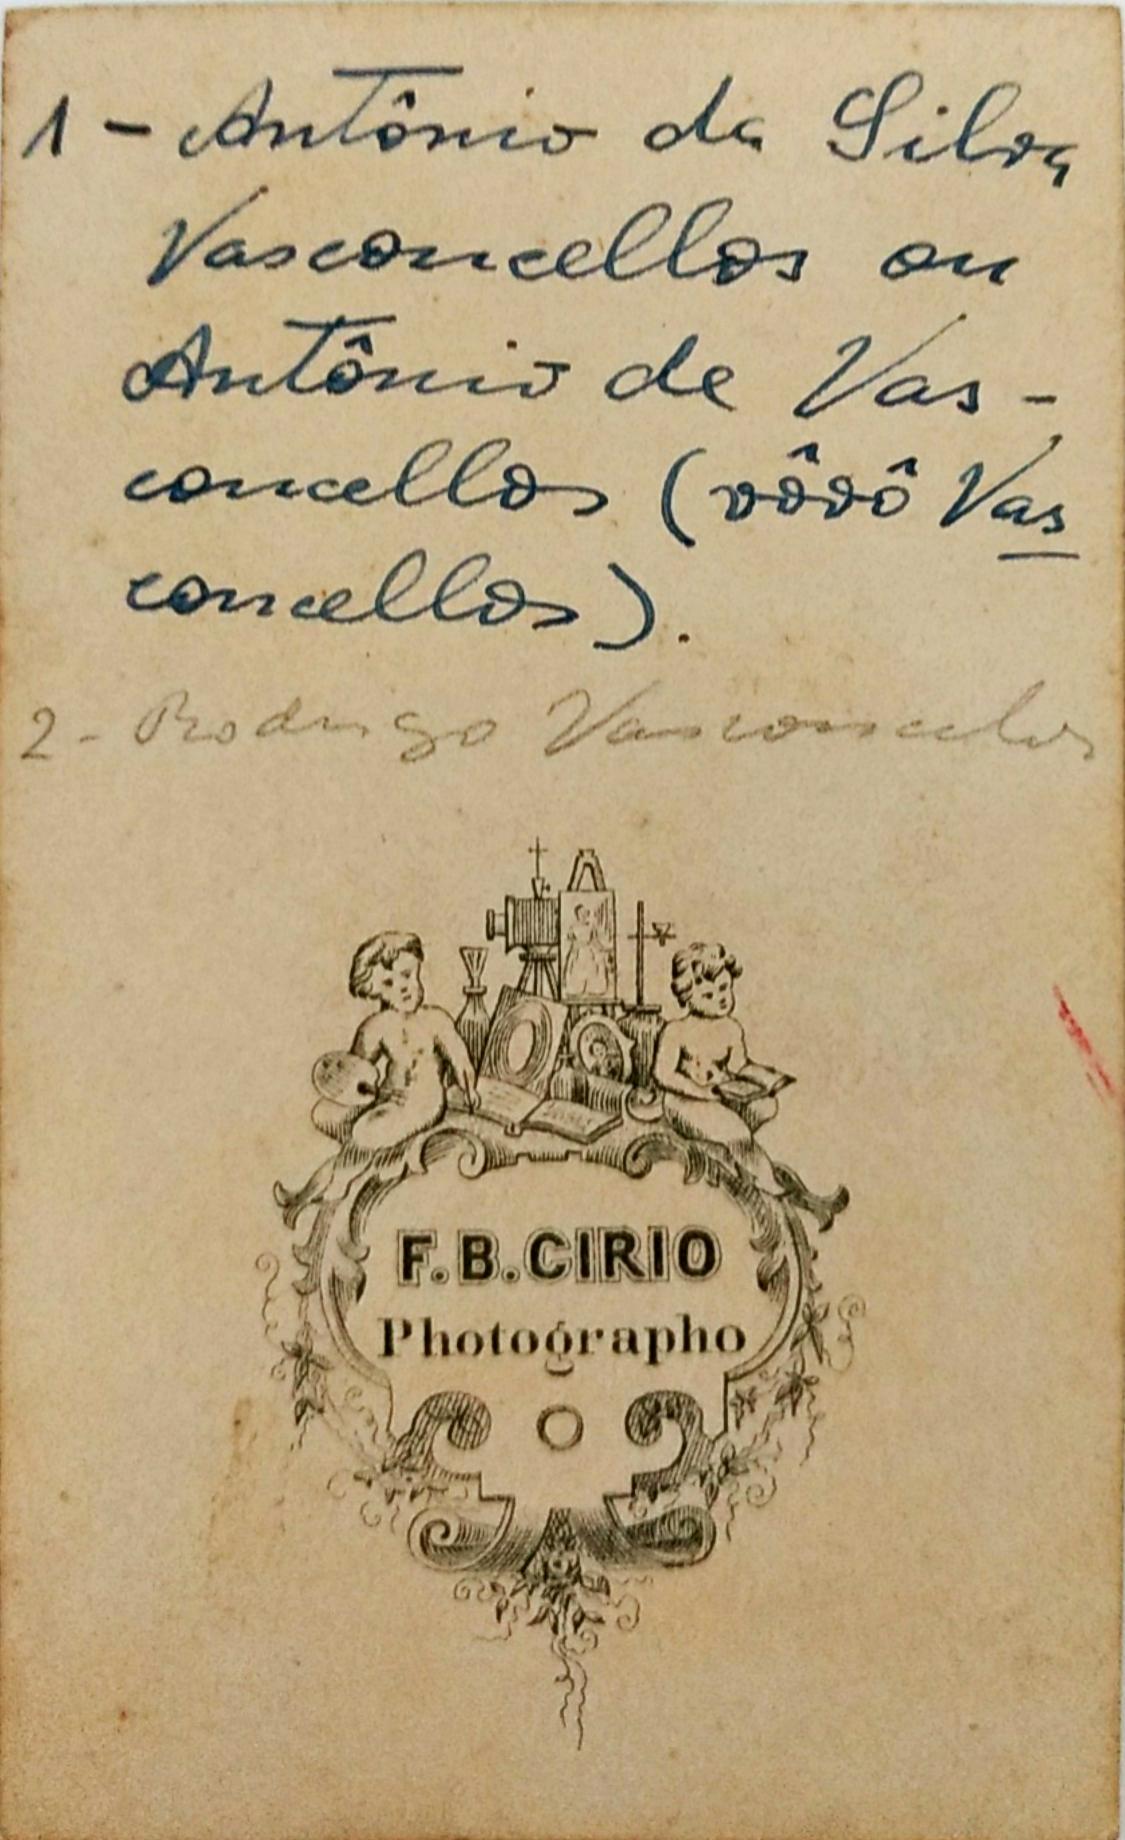 1 - Antônio da Silva
Vasconcellos ou
Antônio de Vas-
concellos (vôvô Vas
concellos).
2 - Rodrigo Vasconcelos
F. B. CIRIO
Photographo